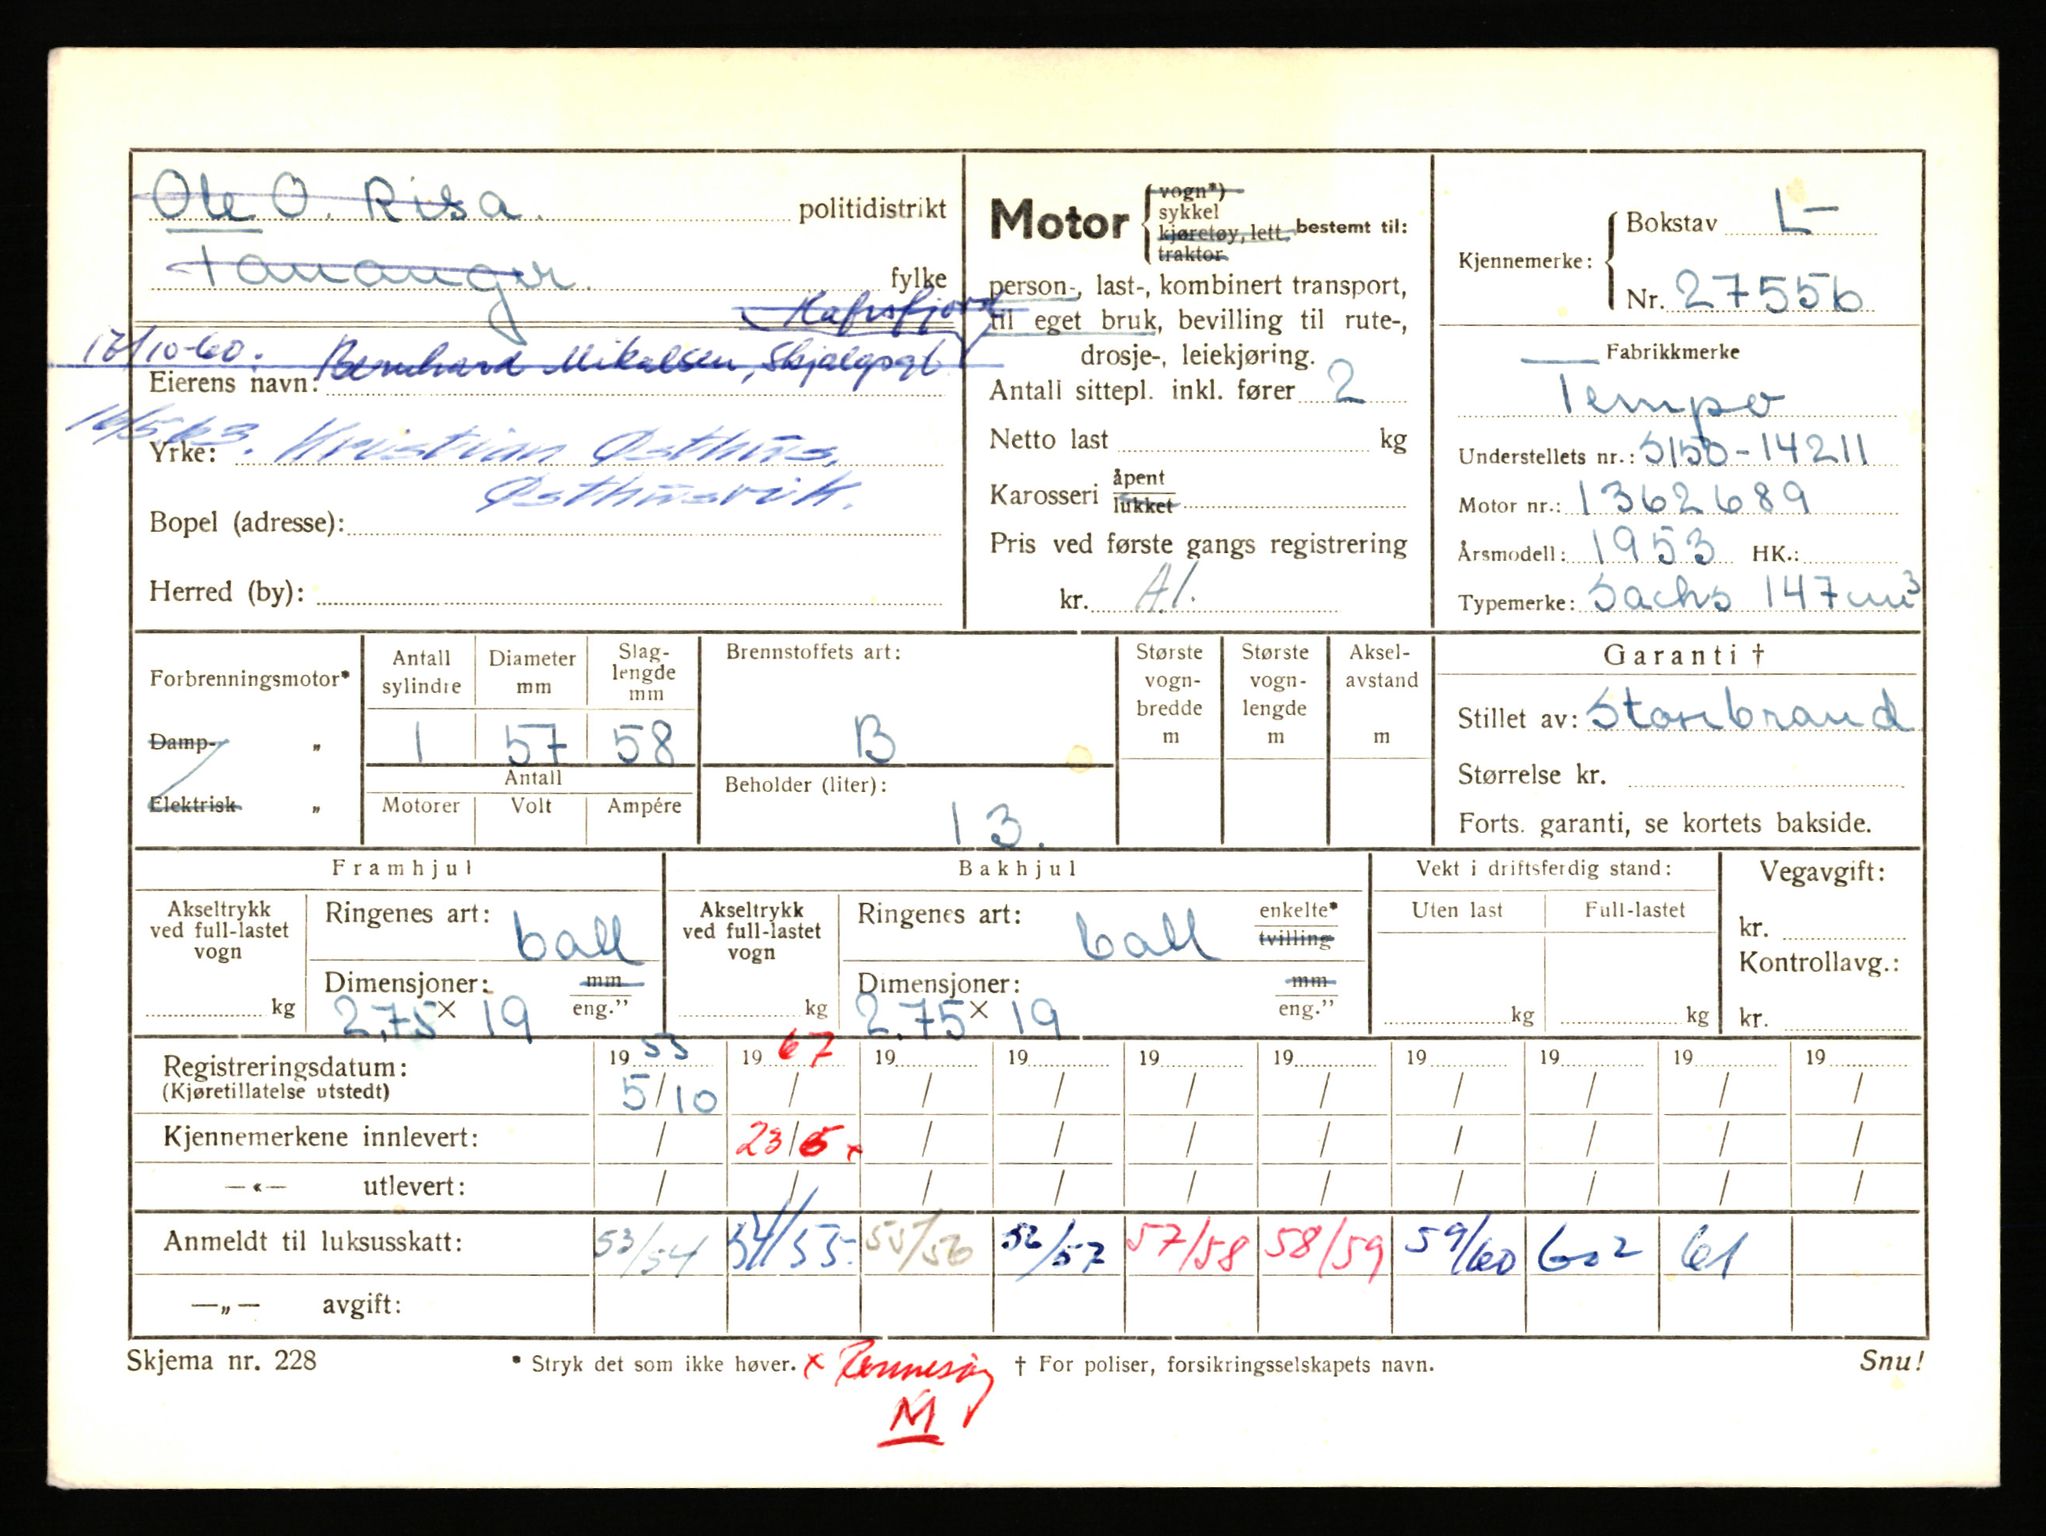 Ole O. Risa politidistrikt
Tananger fylke
Hafrsfjord
Bernhard Mikalsen, Skjalgsgt.
Eierens navn:
16/5 63. Kristian Østhus,
Yrke:
Østhusvik.
Bopel (adresse):
Herred (by):
Motor { vogn*) sykkel kjøretøy, lett traktor bestemt til:
person-, last-, kombinert transport,
til eget bruk, bevilling til rute-,
drosje-, leiekjøring.
Antall sittepl. inkl. fører 2
Netto last kg
Karosseri åpent lukket
Pris ved første gangs registrering
kr. A1.
Kjennemerke: { Bokstav L-
Nr. 27556
Fabrikkmerke
Tempo
Understellets nr.: S150-14211
Motor nr.: 1362689
Årsmodell: 1953 HK.:
Typemerke: Sachs 147 cm³
Forbrenningsmotor*
Damp- „
Elektrisk „
Antall sylindre 1
Diameter mm 57
Slaglengde mm 58
Antall
Motorer Volt Ampére
Brennstoffets art:
B
Beholder (liter):
13.
Største vogn-bredde m
Største vogn-lengde m
Aksel-avstand m
Garanti †
Stillet av: Storebrand
Størrelse kr.
Forts. garanti, se kortets bakside.
Framhjul
Akseltrykk ved full-lastet vogn kg
Ringenes art: ball
Dimensjoner: mm eng.”
2,75 x 19
Bakhjul
Akseltrykk ved full-lastet vogn kg
Ringenes art: ball enkelte* tvilling
Dimensjoner: mm eng.”
2,75 x 19
Vekt i driftsferdig stand:
Uten last Full-lastet
kg kg
Vegavgift:
kr.
Kontrollavg.:
kr.
Registreringsdatum: 19 53 19 67 19 19 19 19 19 19 19 19
(Kjøretillatelse utstedt) 5/10 / / / / / / / / /
Kjennemerkene innlevert: / 23/5 x / / / / / / / /
—«— utlevert: / / / / / / / / / /
Anmeldt til luksusskatt: 53/54 54/55. 55/56 56/57 57/58 58/59 59/60 60² 61
—„— avgift:
Skjema nr. 228 * Stryk det som ikke høver. x Rennesøy † For poliser, forsikringsselskapets navn. Snu!
M